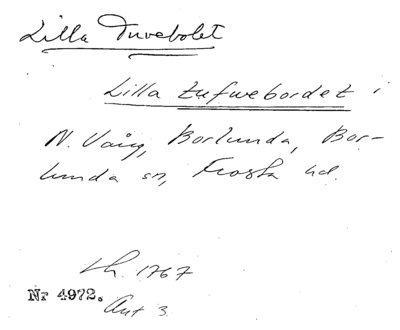 Lilla Tuvebolet
Lilla tufwebordet i
N. Vång, Borlunda, Bor-
lunda sn, Frosta hd.
Lh. 1767
Nr 4972.
Akt 3.